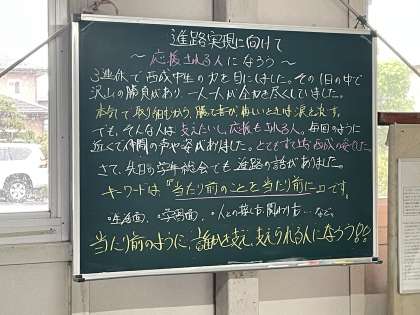 進路実現に向けて
～応援される人になろう～
3連休で西成中生の力を目にしました。その1日の中で
沢山の勝負があり、一人一人が全力を尽くしていました。
本気で取り組むから、勝て喜び、悔しいときは涙を流す。
でも、そんな人は支えたいし、応援もされる人。毎回のように
近くで仲間の声や姿がありました。とてもすてきな西成の姿でした。
さて、先日の学年総会でも進路の話がありました。
キーワードは"当たり前のことを当たり前に"です。
○生活面、○学習面、○人との接し方、関わり方…など。
当たり前のように誰かを支え、支えられる人になろう!!